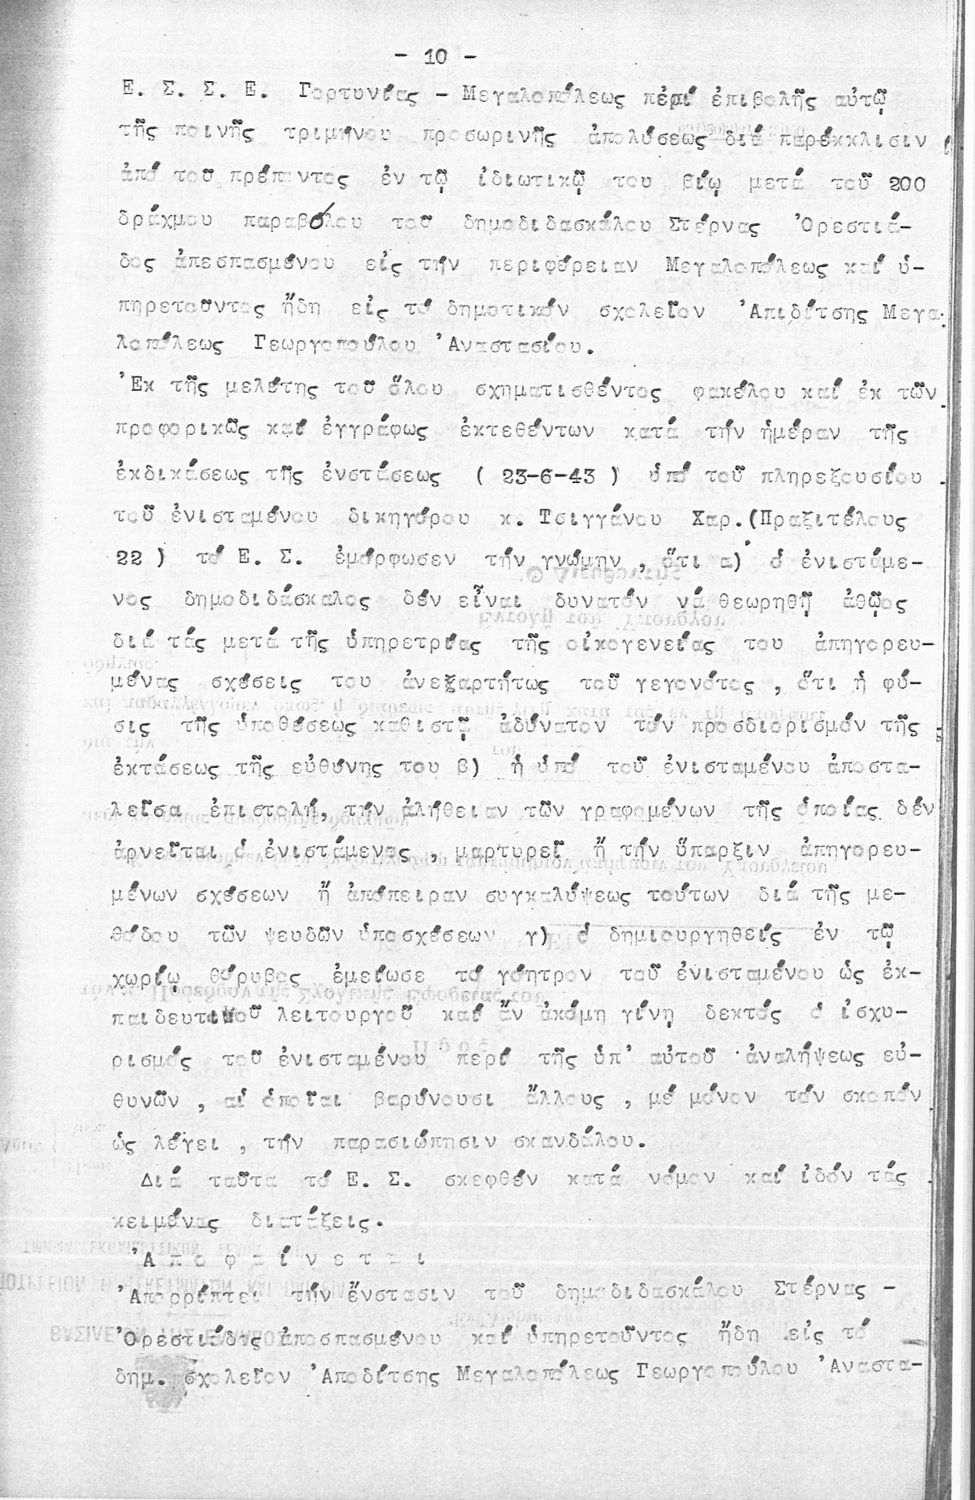 - 10 -
Ε. Σ. Σ. Ε. Γορτυνίας - Μεγαλοπόλεως περί ἐπιβολῆς αὐτῷ
τῆς ποινῆς τριμήνου προσωρινῆς ἀπολύσεως διά παρέκκλισιν
ἀπό τοῦ πρέποντος ἐν τῷ ἰδιωτικῷ του βίῳ μετά τοῦ 200
δράχμου παραβόλου τοῦ δημοδιδασκάλου Στέρνας Ὀρεστιά-
δος ἀπεσπασμένου εἰς τήν περιφέρειαν Μεγαλοπόλεως καί ὑ-
πηρετοῦντος ἤδη εἰς τό δημοτικόν σχολεῖον Ἀπιδίτσης Μεγα-
λοπόλεως Γεωργοπούλου Ἀναστασίου.
Ἐκ τῆς μελέτης τοῦ ὅλου σχηματισθέντος φακέλου καί ἐκ τῶν
προφορικῶς καί ἐγγράφως ἐκτεθέντων κατά τήν ἡμέραν τῆς
ἐκδικάσεως τῆς ἐνστάσεως ( 23-6-43 ) ὑπό τοῦ πληρεξουσίου
τοῦ ἐνισταμένου δικηγόρου κ. Τσιγγάνου Χαρ.(Πραξιτέλους
22 ) τό Ε. Σ. ἐμόρφωσεν τήν γνώμην , ὅτι α) ὁ ἐνιστάμε-
νος δημοδιδάσκαλος δέν εἶναι δυνατόν νά θεωρηθῇ ἀθῷος
διά τάς μετά τῆς ὑπηρετρίας τῆς οἰκογενείας του ἀπηγορευ-
μένας σχέσεις του ἀνεξαρτήτως τοῦ γεγονότος , ὅτι ἡ φύ-
σις τῆς ὑποθέσεως καθιστᾷ ἀδύνατον τόν προσδιορισμόν τῆς
ἐκτάσεως τῆς εὐθύνης του β) ἡ ὑπό τοῦ ἐνισταμένου ἀποστα-
λεῖσα ἐπιστολή, τήν ἀλήθειαν τῶν γραφομένων τῆς ὁποίας δέν
ἀρνεῖται ὁ ἐνιστάμενος , μαρτυρεῖ ἤ τήν ὕπαρξιν ἀπηγορευ-
μένων σχέσεων ἤ ἀπόπειραν συγκαλύψεως τούτων διά τῆς με-
θόδου τῶν ψευδῶν ὑποσχέσεων γ) ὁ δημιουργηθείς ἐν τῷ
χωρίῳ θόρυβος ἐμείωσε τό γόητρον τοῦ ἐνισταμένου ὡς ἐκ-
παιδευτικοῦ λειτουργοῦ καί ἄν ἀκόμη γίνῃ δεκτός ὁ ἰσχυ-
ρισμός τοῦ ἐνισταμένου περί τῆς ὑπ' αὐτοῦ ἀναλήψεως εὐ-
θυνῶν , αἱ ὁποῖαι βαρύνουσι ἄλλους , μέ μόνον τόν σκοπόν
ὡς λέγει , τήν παρασιώπησιν σκανδάλου.
Διά ταῦτα τό Ε. Σ. σκεφθέν κατά νόμον καί ἰδόν τάς
κειμένας διατάξεις.
Ἀ π ο φ α ί ν ε τ α ι
Ἀπορρίπτει τήν ἔνστασιν τοῦ δημοδιδασκάλου Στέρνας -
Ὀρεστιάδος ἀποσπασμένου καί ὑπηρετοῦντος ἤδη εἰς τό
δημ. σχολεῖον Ἀποδίτσης Μεγαλοπόλεως Γεωργοπούλου Ἀναστα-